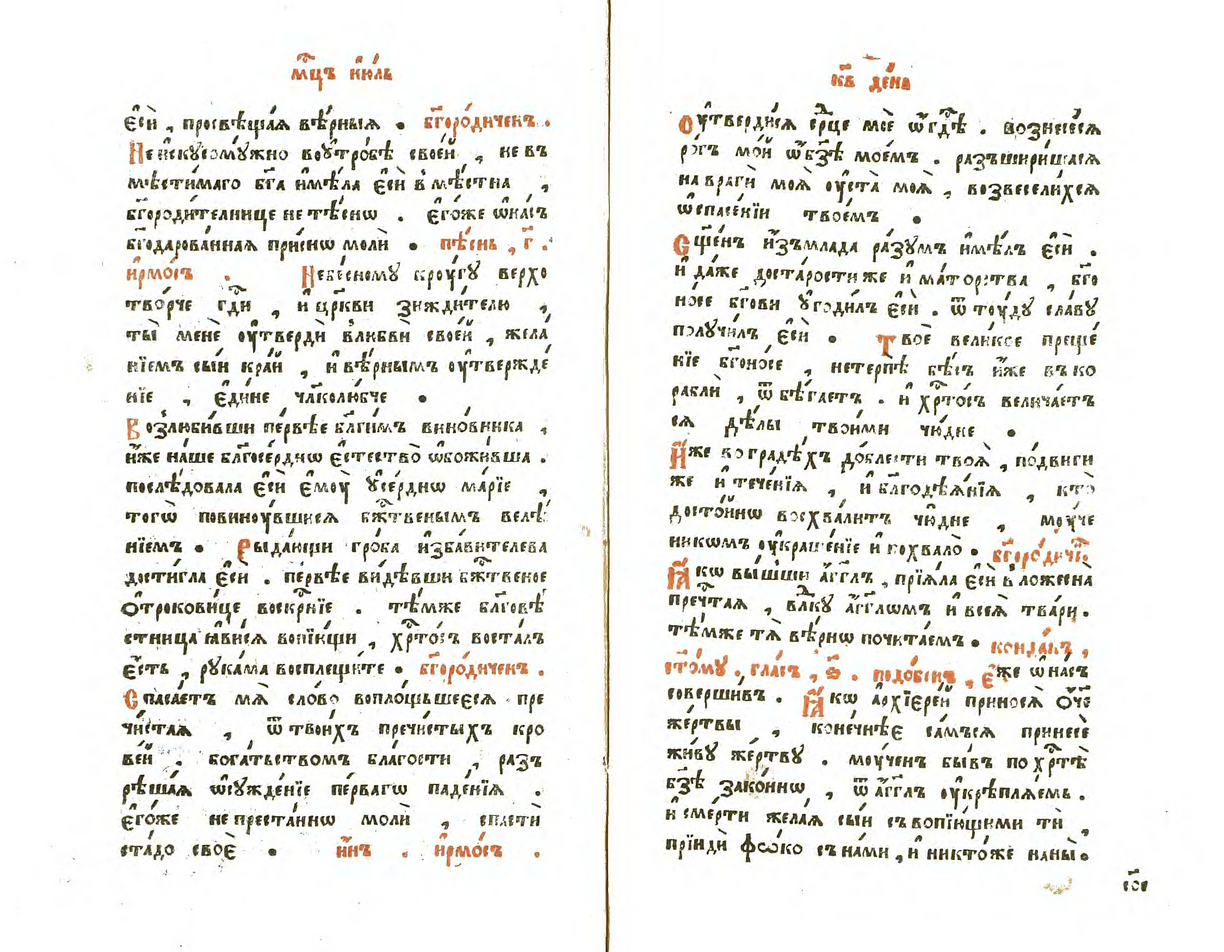 мц҃ъ ию́ль
є҆сѝ , просвѣща́ѧ вѣ́рныѧ . бг҃оро́диченъ .
Неискꙋсомꙋ́жно воꙋтро́бѣ свое́й , не въ
мѣсти́маго бг҃а и҆мѣ́ла є҆сѝ вмѣстна ,
бг҃ороди́телнице не тѣ́снѡ . є҆го́же ѡ҆на́съ
бг҃одарова́нная при́снѡ молѝ . пѣ́снь , г҃ .
и҆рмо́съ . Небе́сномꙋ крꙋ́гꙋ верхо
тво́рче гд҃и , и҆ цр҃кви зижди́телю ,
ты̀ менѐ ᲂу҆твердѝ влюбвѝ свое́й , жела́
нїемъ сы́и кра́й , и҆ вѣ́рнымъ ᲂу҆твержде́
нїе , є҆ди́не чл҃колю́бче .
Возлюби́вши пе́рвѣе бл҃ги́мъ вино́вника ,
и҆́же на́ше бл҃госе́рдиѡ є҆стество̀ ѡ҆божи́вша .
послѣ́довала є҆сѝ є҆мꙋ̀ ᲂу҆се́рднѡ мр҃і́е ,
тогѡ̀ повинꙋ́вшиеся бж҃твенымъ велѣ́
нїемъ . Рыда́ющи гро́ба и҆зба́вителева
дости́гла є҆сѝ . пе́рвѣе ви́дѣвши бж҃твеное
ѻ҆трокови́це воскрн҃їе . тѣ́мже бл҃говѣ́
стница ꙗ҆ви́ся вопїю́щи , хр҃то́съ воста́лъ
є҆́сть , рꙋка́ма восплещи́те . бг҃оро́диченъ .
Спаса́етъ мѧ̀ сло́во вопло́щьшееся пре
чи́стая , ѿ твои́хъ пречи́стыхъ кро
ве́й . бога́тьствомъ бла́гости , разъ
рѣша́ѧ ѡ҆сꙋжде́нїе пе́рвагѡ паде́нїѧ .
є҆го́же непреста́ннѡ молѝ , спастѝ
ста́до своѐ . ны́нѣ . и҆рмо́съ .
кв҃ де́нь
Оу҆тверди́ся ср҃це моѐ ѡ҆ гд҃ѣ . вознесе́ся
ро́гъ мо́й ѡ҆ бз҃ѣ мое́мъ . разъшири́шася
на врагѝ моѧ̀ ᲂу҆ста̀ моѧ̀ , возвесели́хся
ѡ҆ спасе́нїи твое́мъ .
Сщ҃е́нъ и҆зъмла́да ра́зꙋмъ и҆мѣ́лъ є҆сѝ .
и҆ да́же доста́рости же и҆ ма́торства , бг҃о
но́се бг҃ови ᲂу҆годи́лъ є҆сѝ . ѿ тꙋ́дꙋ сла́вꙋ
полꙋчи́лъ є҆сѝ . Твоѐ вели́кое преще́
нїе бг҃оно́се , нетерпѧ̀ бѣ́съ и҆́же въ ко
раблѝ , ѿ бѣга́етъ . и҆ хр҃то́съ велича́ет
ся дѣ́лы твои́ми чю́дне .
И҆́же во градѣ́хъ до́блести твоѧ̀ , по́двиги
же и҆ тече́нїѧ , и҆ бл҃годѣѧ́нїѧ , кто̀
досто́йнѡ восхва́литъ чю́дне , мꙋ́че
никѡмъ ᲂу҆краше́нїе и҆ похвало̀ . бг҃оро́диченъ .
Ꙗ҆́кѡ вы́шши а҆́гг҃лъ , прїѧ́ла є҆сѝ вложесна̀
преч҃тая , влⷣкꙋ а҆́гг҃лѡмъ и҆ всеѧ̀ тва́ри .
тѣ́мже тѧ̀ вѣ́рнѡ почита́емъ . конда́къ ,
ст҃о́мꙋ . гла́съ , ѕ҃ . подо́бенъ , Є҆́же ѡ҆ на́съ
соверши́въ . Ꙗ҆́кѡ а҆рхїере́й приносѧ̀ ѻ҆́ч҃е
же́ртвы , коне́чнѣе са́мъся принесѐ
жи́вꙋ же́ртвꙋ . мꙋ́ченъ бы́въ по хр҃тѣ̀
бз҃ѣ зако́ннѡ , ѿ а҆́гг҃лъ ᲂу҆крѣплѧ́емь .
и҆ сме́рти жела́ѧ сы́и съ вопїю́щими тѝ ,
прїидѝ фѡ́ко съ на́ми , и҆ никто́же наны̀ .